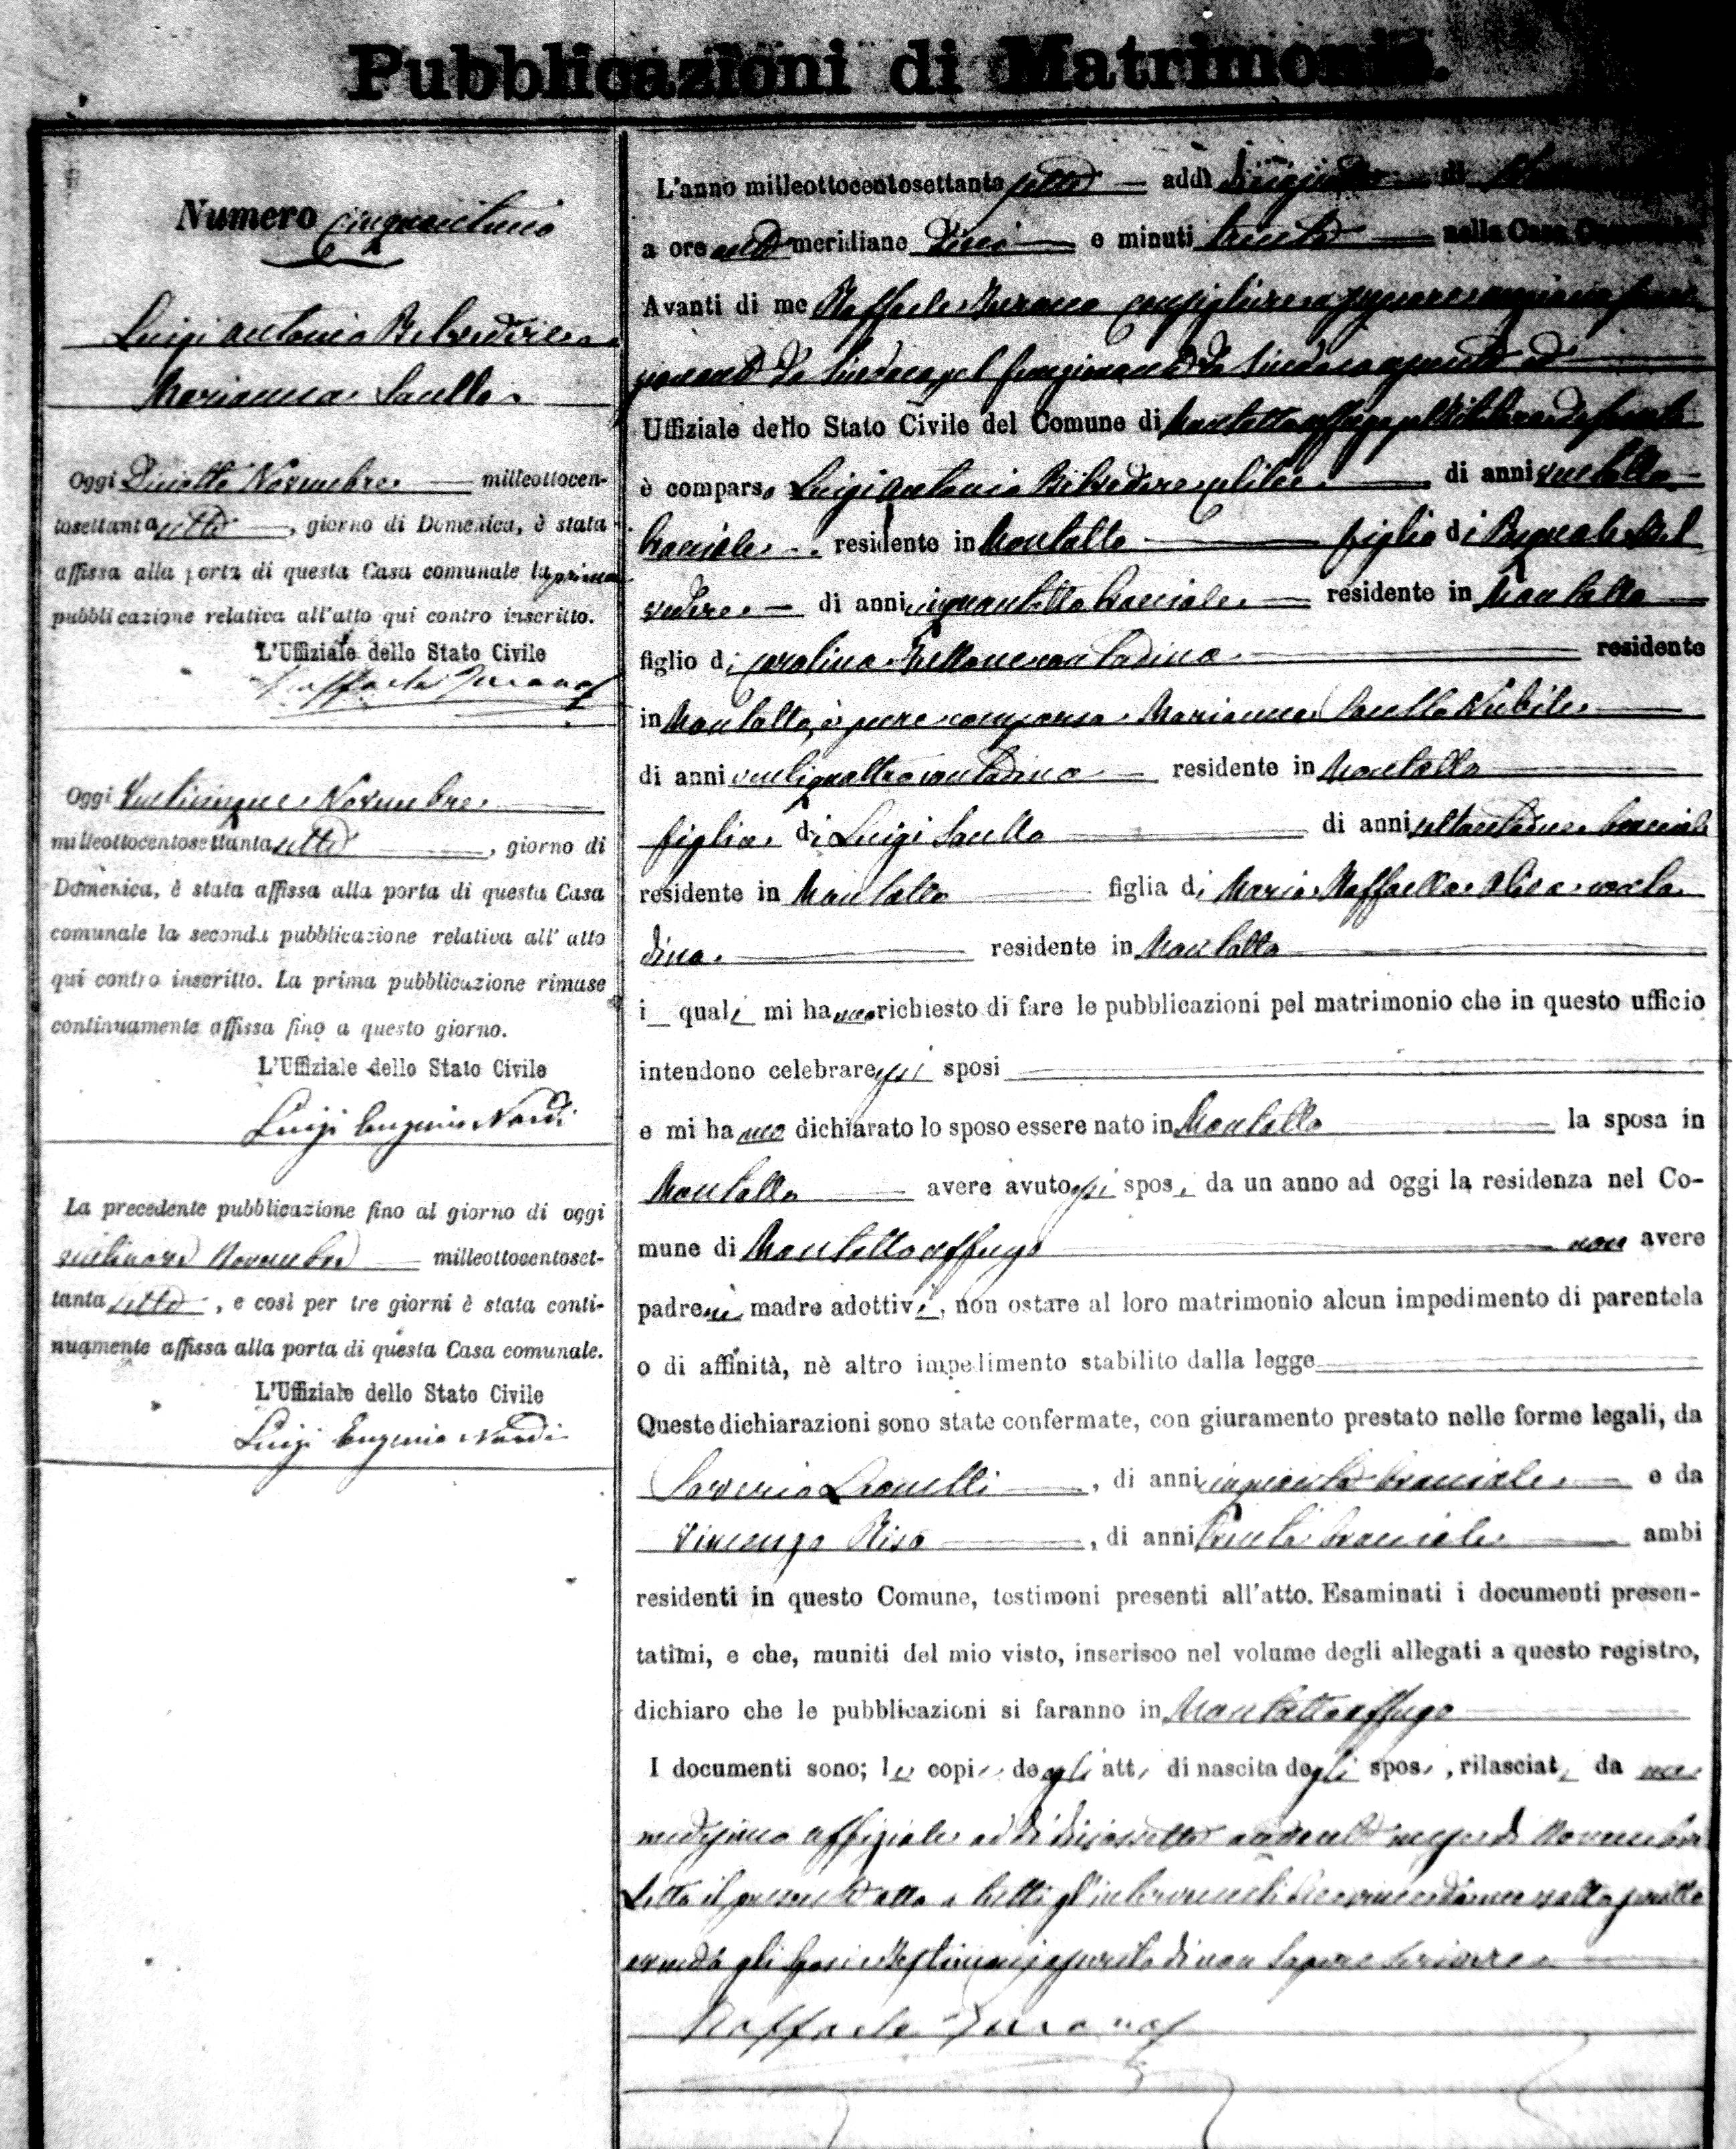 Pubblicazioni di Matrimonio.
Numero cinquantuno
Luigi Antonio Belvedere e
Marianna Saullo.
Oggi Diciotto Novembre milleottocen-
tosettanta sette, giorno di Domenica, è stata
affissa alla porta di questa Casa comunale la prima
pubblicazione relativa all'atto qui contro inscritto.
L'Uffiziale dello Stato Civile
Raffaele
Oggi Venticinque Novembre
milleottocentosettanta sette, giorno di
Domenica, è stata affissa alla porta di questa Casa
comunale la seconda pubblicazione relativa all' atto
qui contro inscritto. La prima pubblicazione rimase
continuamente affissa fino a questo giorno.
L'Uffiziale dello Stato Civile
Luigi Eugenio Nardi
La precedente pubblicazione fino al giorno di oggi
ventinove Novembre milleottocentoset-
tanta sette, e così per tre giorni è stata conti-
nuamente affissa alla porta di questa Casa comunale.
L'Uffiziale dello Stato Civile
Luigi Eugenio Nardi
L'anno milleottocentosettanta sette addì di
a ore anti meridiane Dieci e minuti trenta nella Casa
Avanti di me Raffaele consigliere
di Sindaco pel funzionante da Sindaco assente ed
Uffiziale dello Stato Civile del Comune di Montalto uffugo
è comparso Luigi Antonio Belvedere celibe di anni
bracciale residente in Montalto figlio di Pasquale Bel
vedere di anni cinquantotto bracciale residente in Montalto
figlio di Carolina contadina residente
in Montalto, è pure comparsa Marianna Saullo Nubile
di anni ventiquattro contadina residente in Montalto
figlia di Luigi Saullo di anni settantadue bracciale
residente in Montalto figlia di Maria Raffaella conta
dina residente in Montalto
i quali mi hanno richiesto di fare le pubblicazioni pel matrimonio che in questo ufficio
intendono celebrare essi sposi
e mi hanno dichiarato lo sposo essere nato in Montalto la sposa in
Montalto avere avuto essi sposi da un anno ad oggi la residenza nel Co-
mune di Montalto uffugo non avere
padre nè madre adottivi, non ostare al loro matrimonio alcun impedimento di parentela
o di affinità, nè altro impedimento stabilito dalla legge
Queste dichiarazioni sono state confermate, con giuramento prestato nelle forme legali, da
Saverio, di anni cinquanta bracciale e da
Vincenzo Riso, di anni trenta bracciale ambi
residenti in questo Comune, testimoni presenti all'atto. Esaminati i documenti presen-
tatimi, e che, muniti del mio visto, inserisco nel volume degli allegati a questo registro,
dichiaro che le pubblicazioni si faranno in Montalto uffugo
I documenti sono; le copie degli atti di nascita degli sposi, rilasciati da me
medesimo uffiziale ad dì diciassette andante mese di Novembre
Letto il presente atto a tutti gl'intervenuti
gli sposi e testimoni asserito di non sapere scrivere
Raffaele